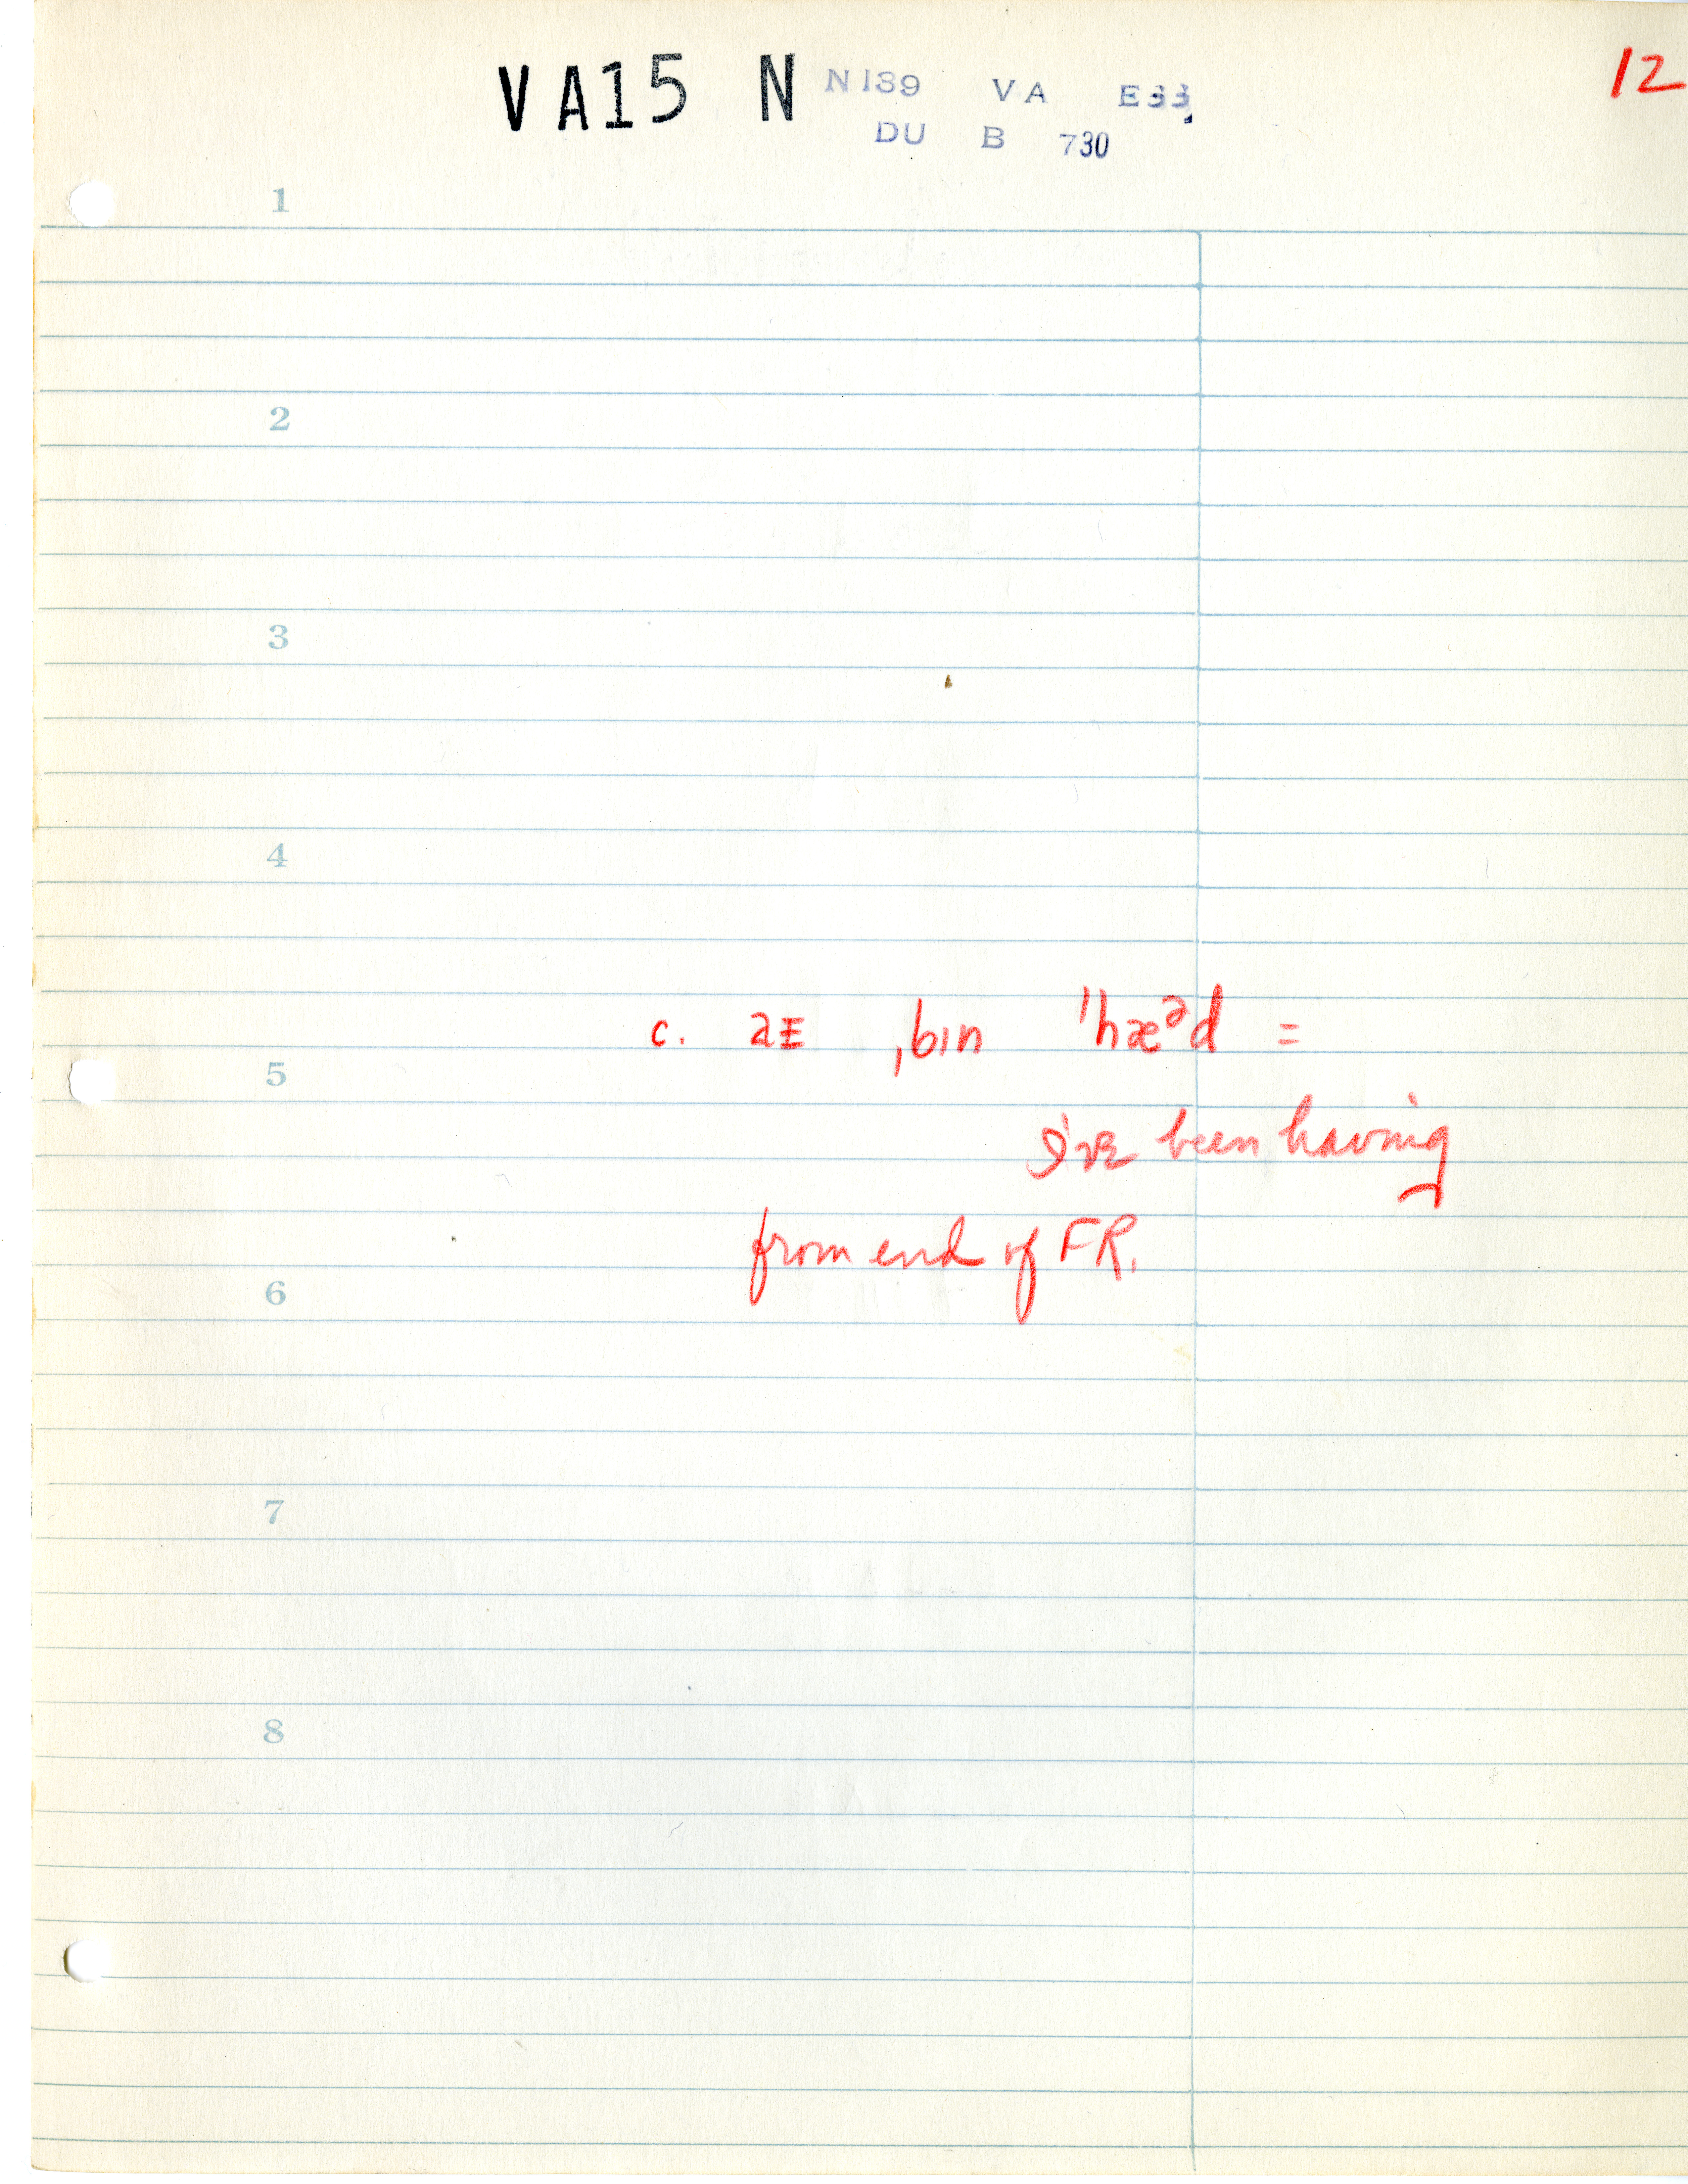 VA15 N N139 VA E33
DU B 730
12
1
2
3
4
c. aE ˌbɪn ˈhæᵊd =
5
I've been having
from end of FR.
6
7
8